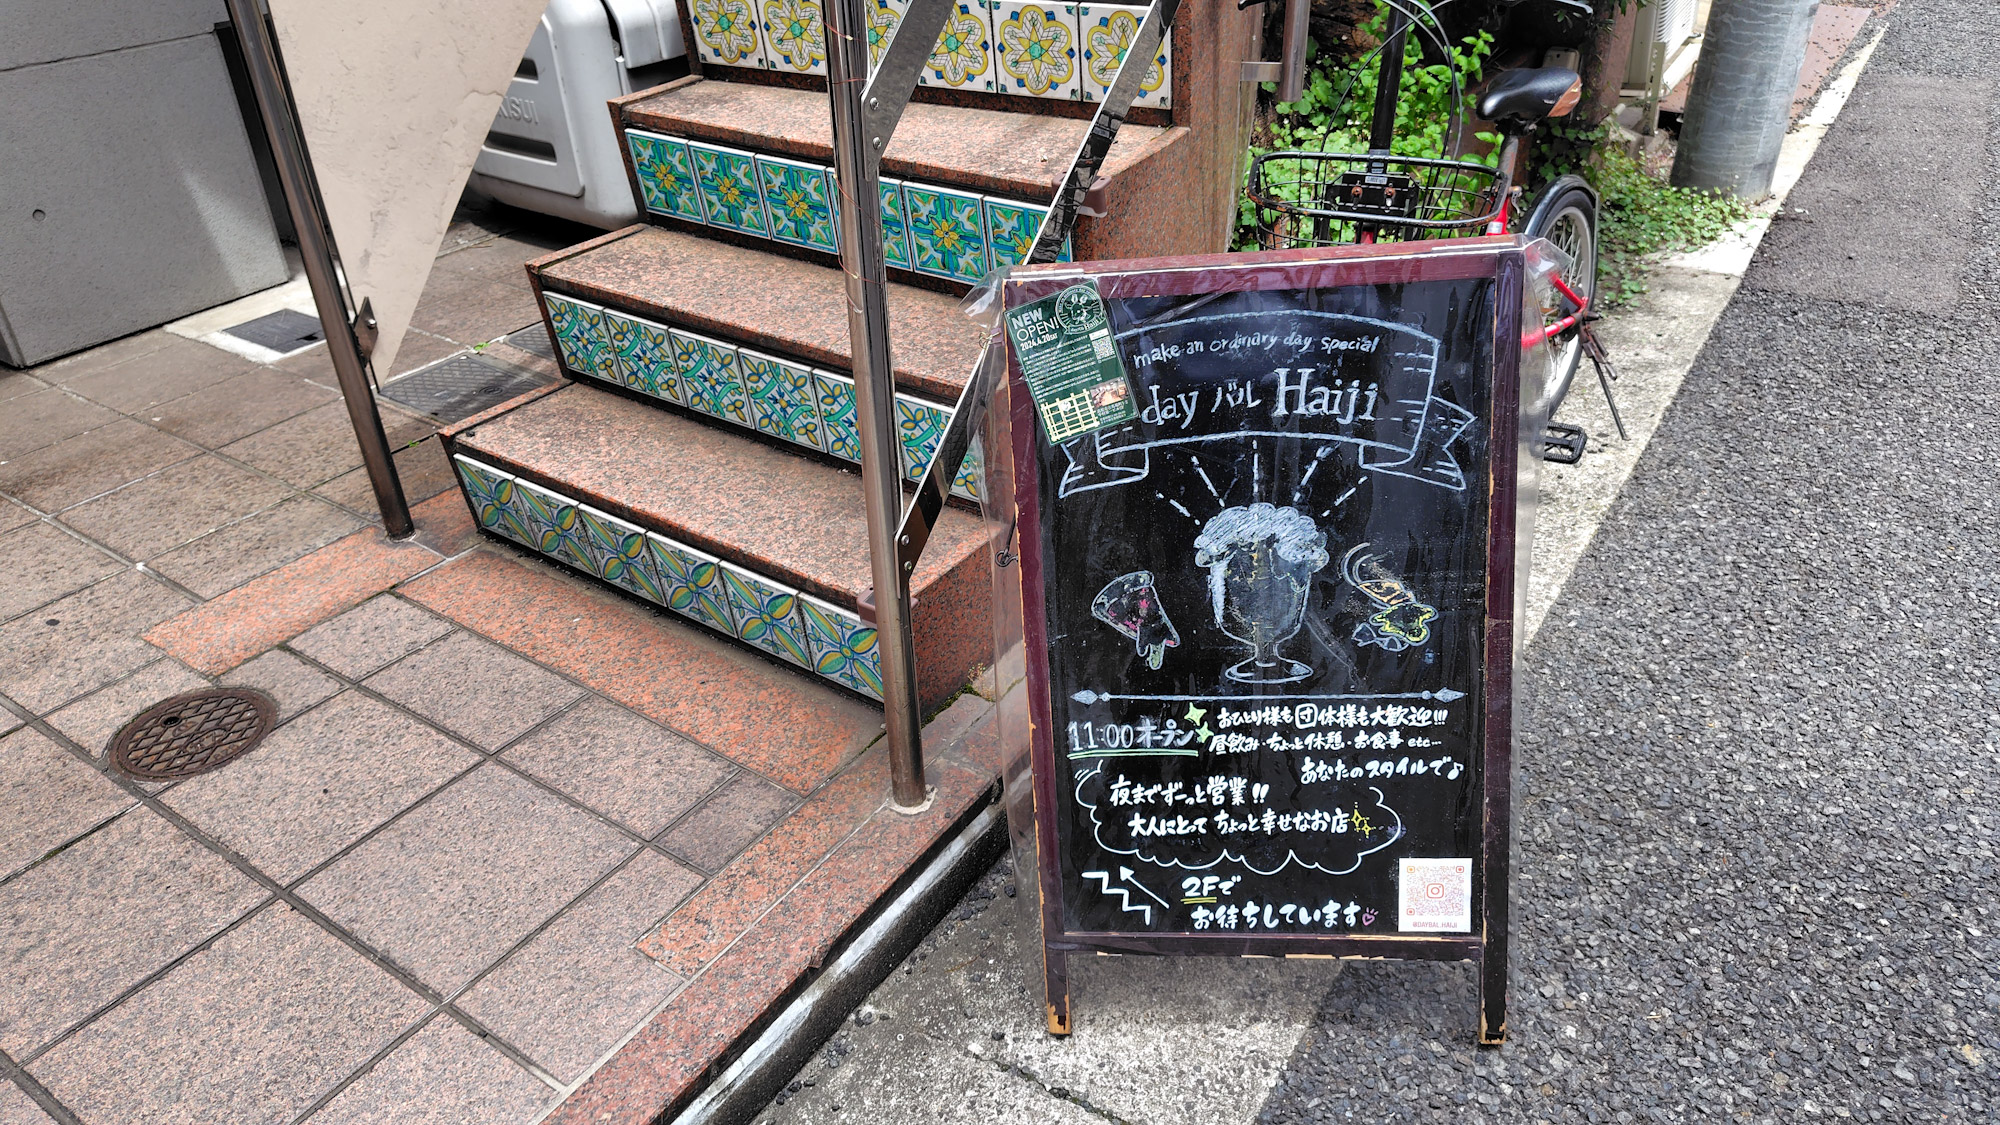 NEW
OPEN!
2024.4.20
Haiji
make an ordinary day special
day バル Haiji
11:00オープン
おひとり様も団体様も大歓迎!!!
昼飲み・ちょっと休憩・お食事 etc…
あなたのスタイルで♪
夜までずーっと営業!!
大人にとってちょっと幸せなお店
2Fで
お待ちしています
@DAYBAL_HAIJI